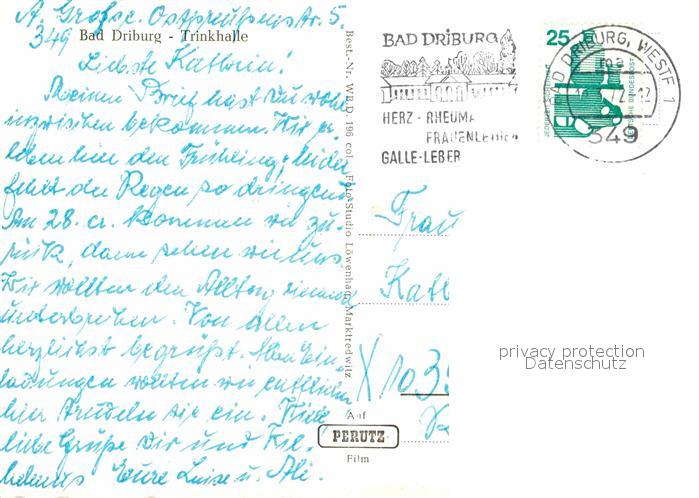 A. Grafsc. Ostpreußenstr. 5.
349 Bad Driburg - Trinkhalle
Liebste Kathrin!
Meinen Brief hast Du wohl
inzwischen bekommen. Wir er-
leben hier den Frühling, leider
fehlt der Regen so dringend
Am 28. cr. kommen wir zu-
rück, dann sehen wir uns.
Wir wollten den Alltag einmal
unterbrechen. Von allen
herzlichst begrüßt. Allen Ein-
ladungen wollten wir
hier ein. Viele
liebe Grüße Dir und
Eure Luise u. Ali.
Best.-Nr. W.B.D. 196 col. Foto-Studio Löwenhag, Marktredwitz
Auf
PERUTZ
Film
BAD DRIBURG
HERZ - RHEUMA
FRAUENLEIDEN
GALLE-LEBER
25
BAD DRIBURG, WESTF 1
349
DEUTSCHE BUNDESPOST
Frau
Kath
X 1035
privacy protection
Datenschutz